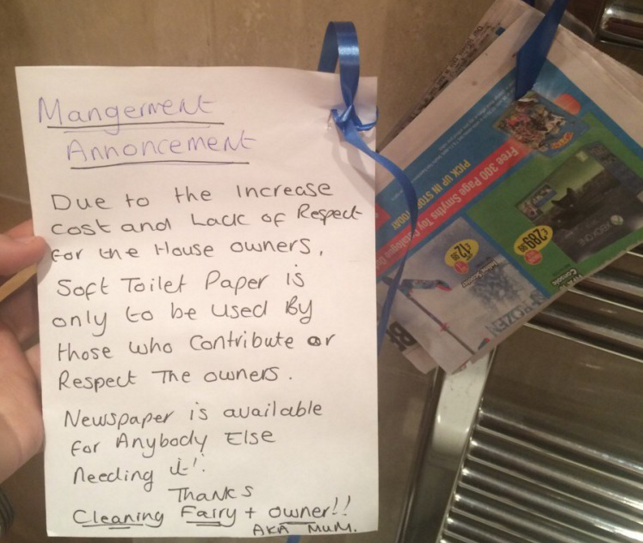 Mangement
Annoncement
Due to the Increase
cost and Lack of Respect
for the House owners,
Soft Toilet Paper is
only to be used By
those who contribute or
Respect The owners.
Newspaper is available
for Anybody Else
Needing it!.
Thanks
Cleaning Fairy + owner!!
AKA MUM.
Free 300 Page Smyths Toy
PICK UP IN
TODAY!
£289.99
£12.99
FROZEN